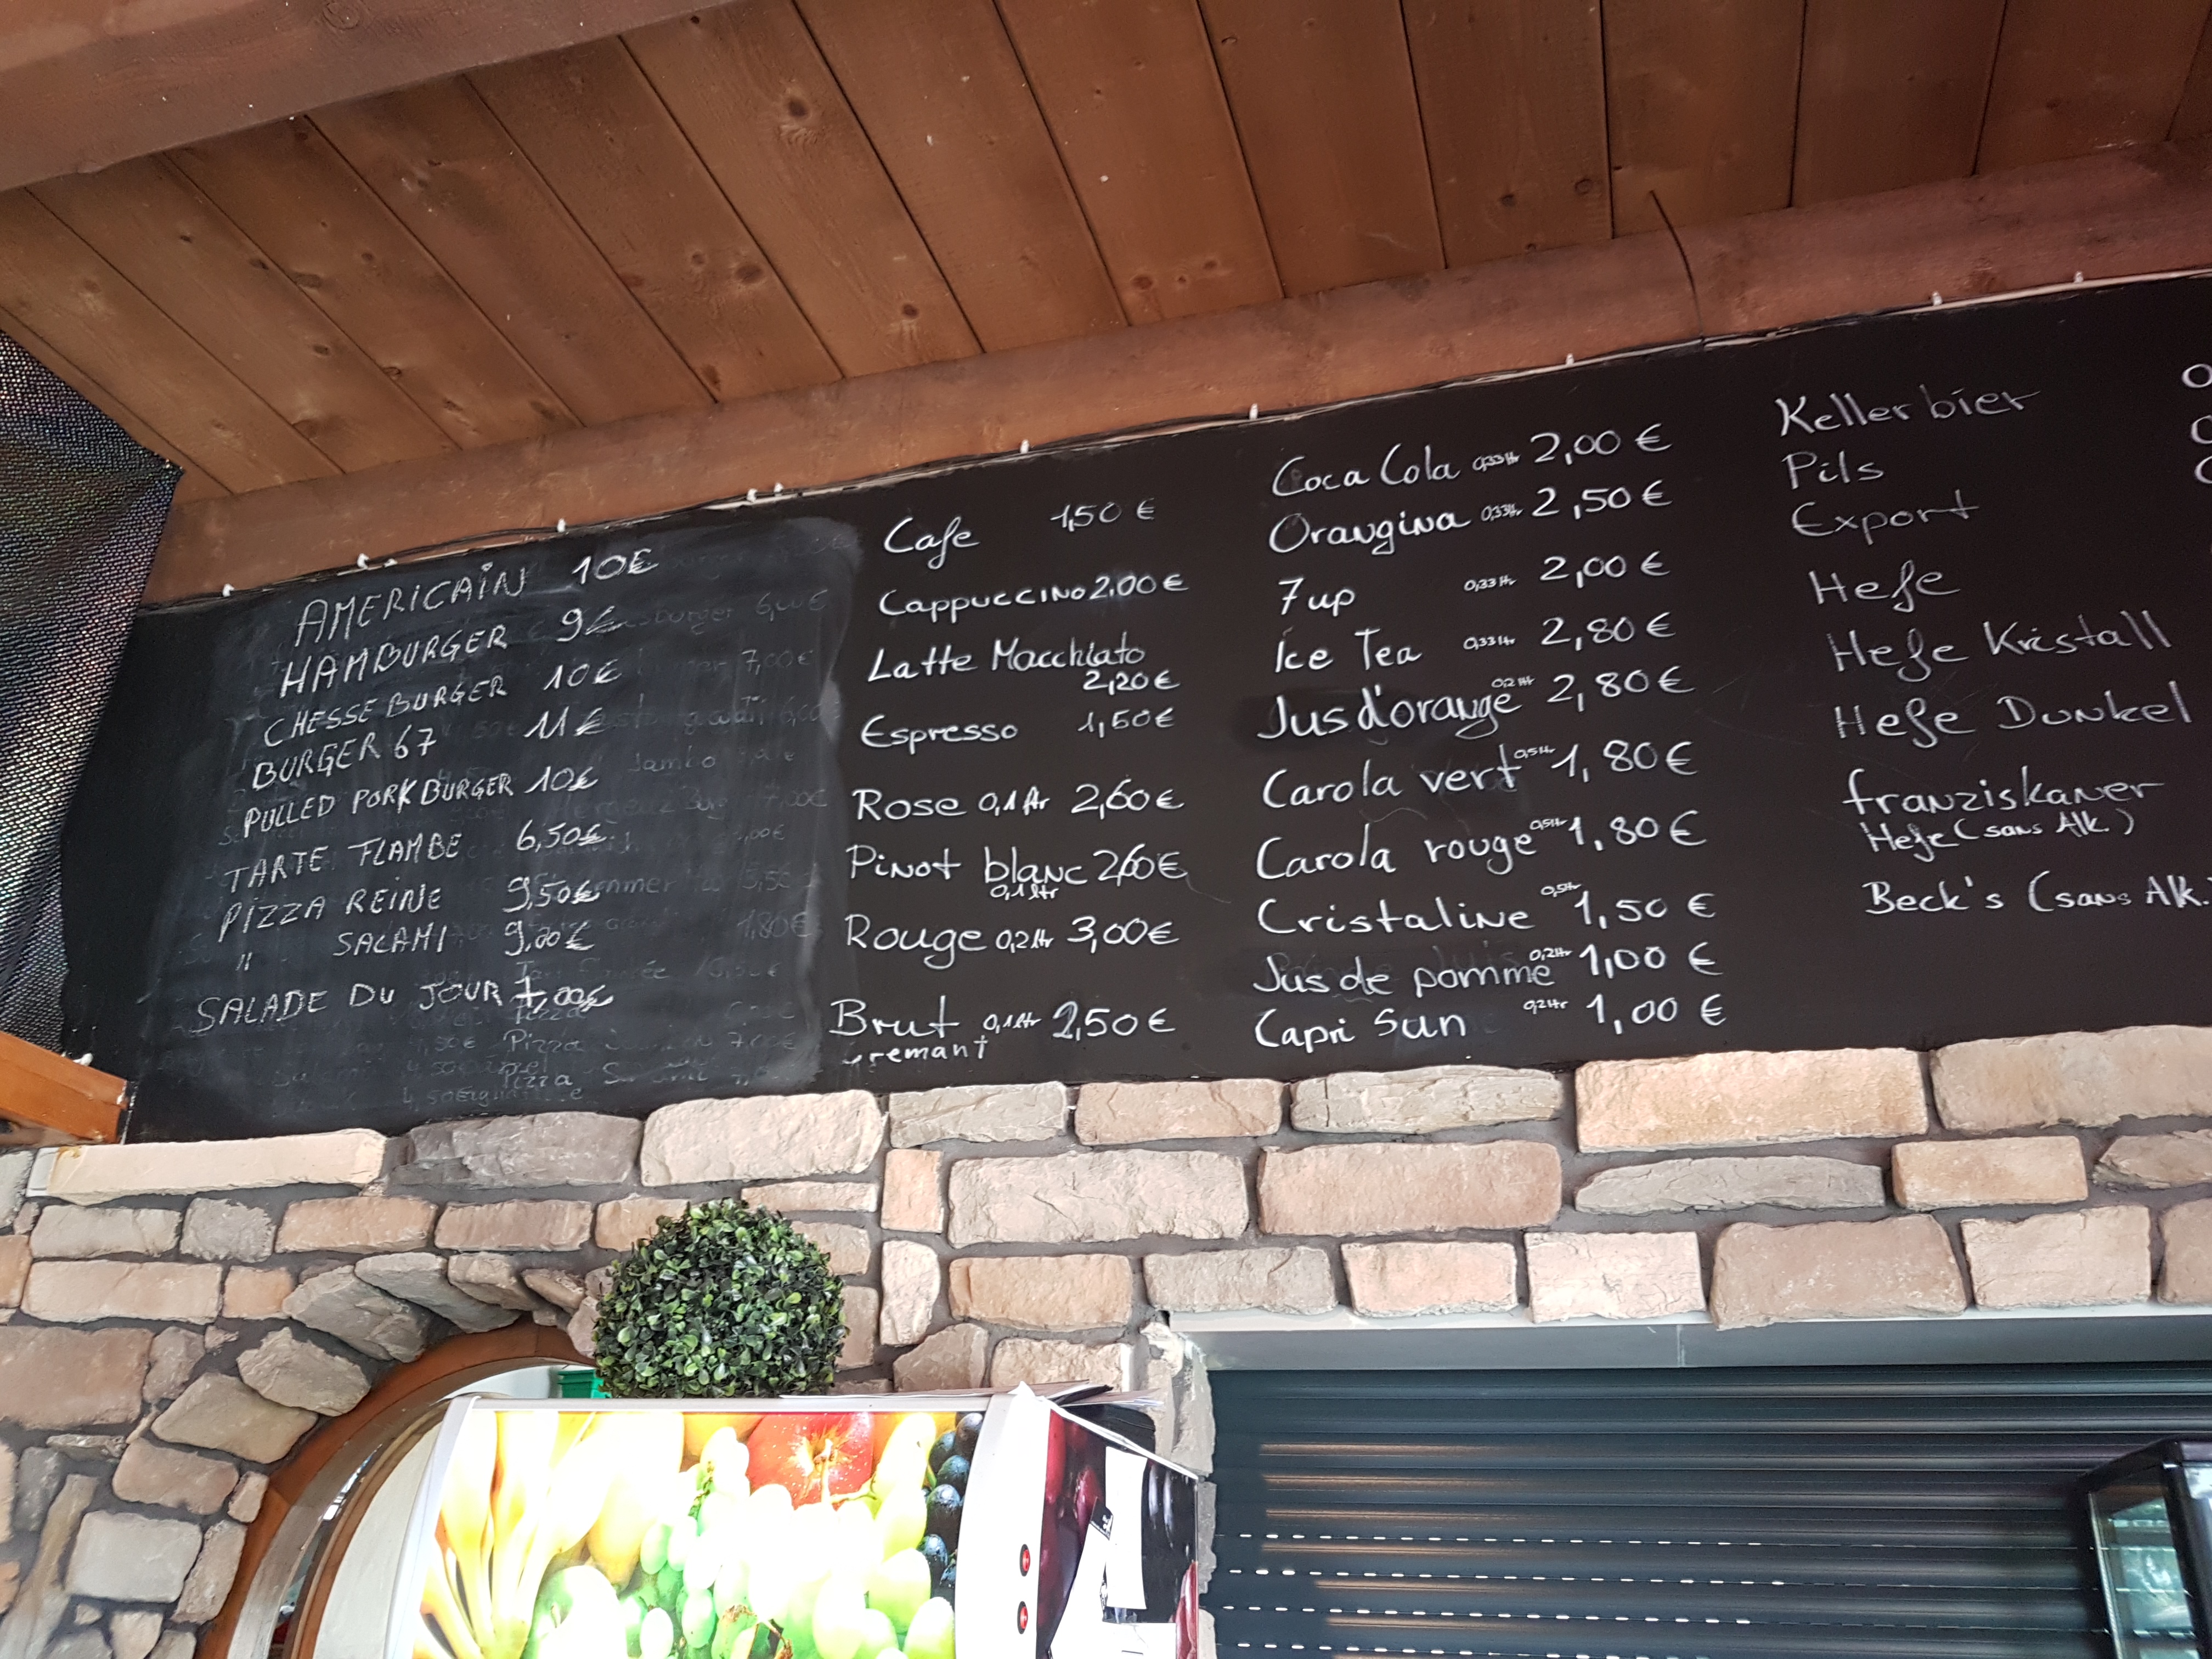 AMERICAIN 10€
HAMBURGER 9€
CHESSEBURGER 10€
BURGER 67 11€
PULLED PORKBURGER 10€
TARTE FLAMBE 6,50€
PIZZA REINE 9,50€
" SALAMI 9,00€
SALADE DU JOUR 7,00€
Cafe 1,50 €
Cappuccino 2,00€
Latte Macchiato
2,20€
Espresso 1,50€
Rose 0,1 ltr 2,60€
Pinot blanc 2,60€
0,1 ltr
Rouge 0,2 ltr 3,00€
Brut 0,1 ltr 2,50€
cremant
Coca Cola 0,33 ltr 2,00 €
Orangina 0,33 ltr 2,50 €
7up 0,33 ltr 2,00 €
Ice Tea 0,33 ltr 2,80 €
Jus d'orange 0,2 ltr 2,80 €
Carola vert 0,5 ltr 1,80 €
Carola rouge 0,5 ltr 1,80 €
Cristaline 0,5 ltr 1,50 €
Jus de pomme 0,2 ltr 1,00 €
Capri Sun 0,2 ltr 1,00 €
Kellerbier
Pils
Export
Hefe
Hefe Kristall
Hefe Dunkel
franziskaner
Hefe (sans Alk.)
Beck's (sans Alk.)